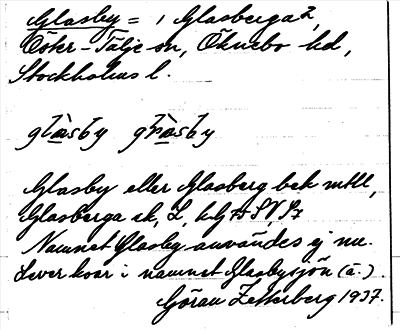 Glasby = 1 Glasberga
Öster-Tälje sn, Öknebo hd,
Stockholms l.
glàsby gràsby
Glasby eller Glasberg bek mtl,
Glasberga sk,
Namnet Glasby användes ej nu.
Lever kvar i namnet Glasbysjön (ä.)
Göran Zetterberg 1937.